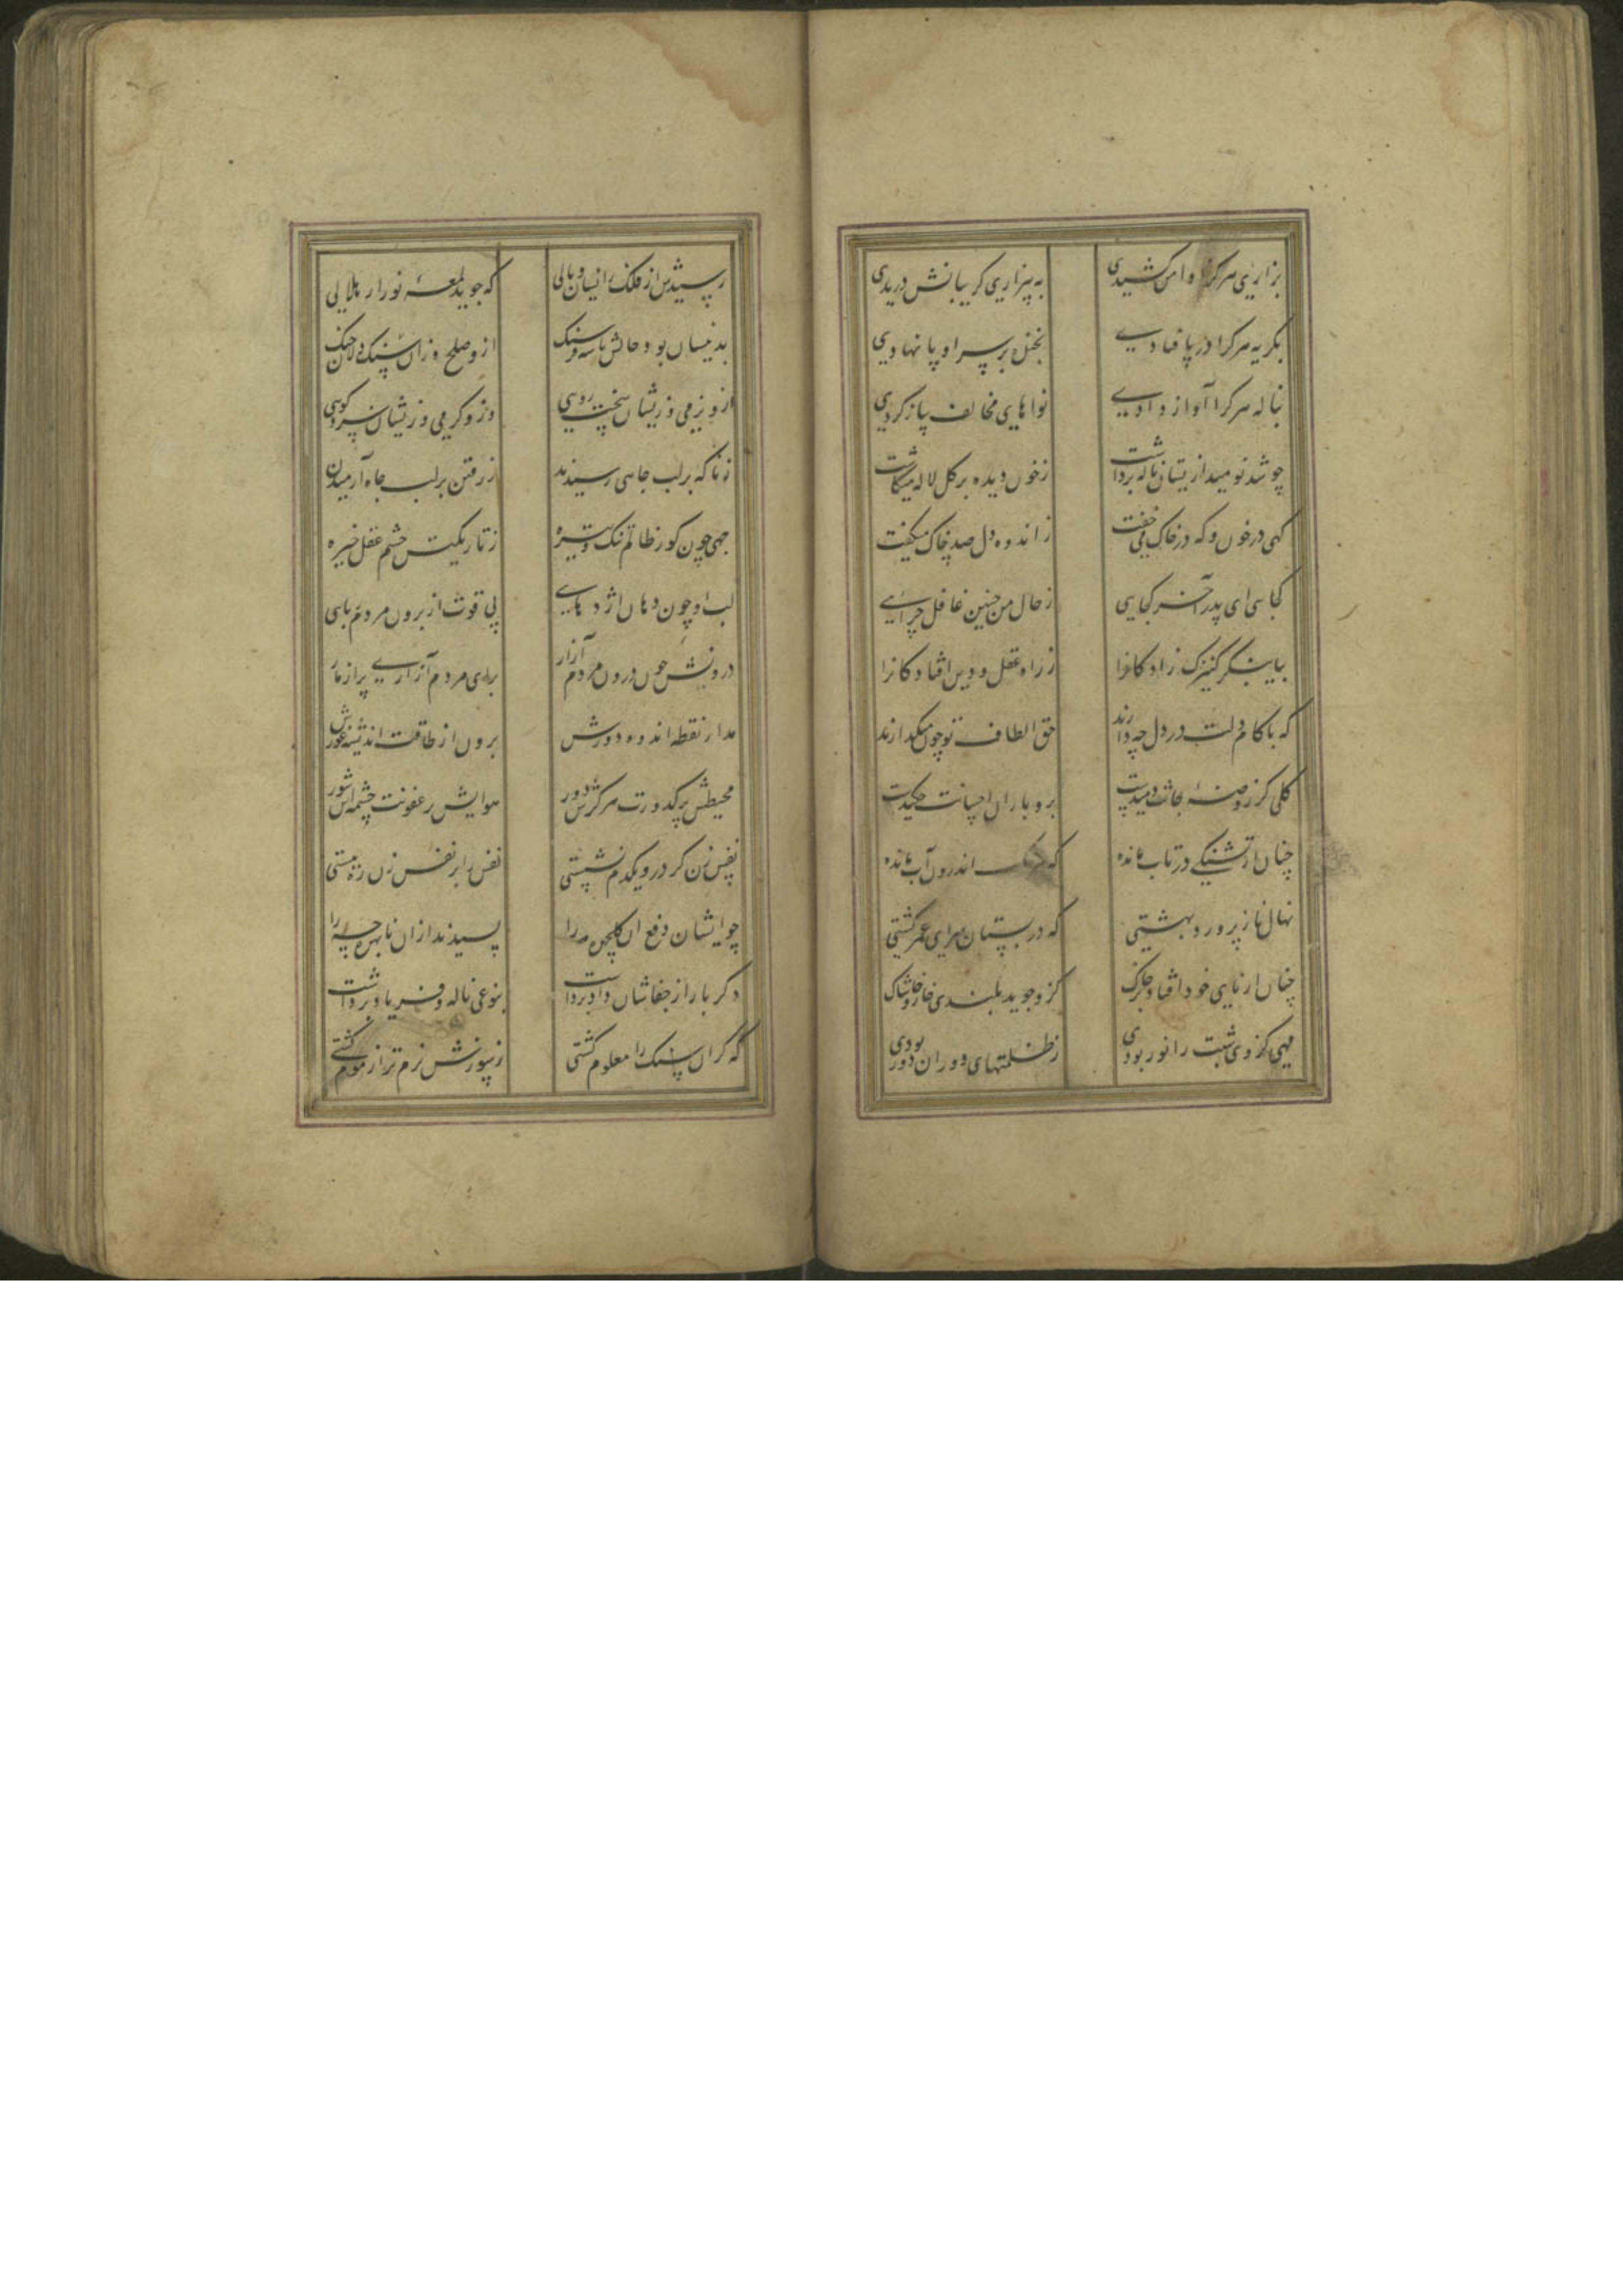 بزاری هر کرا دامن کشیدی به بیزاری گریبانش دریدی
بگریه هر کرا در پا فتادی بخنده بر سر او پا نهادی
بناله هر کرا آواز دادی نواهای مخالف ساز کردی
چو شد نومید از یشان ناله برداشت ز خون دیده بر گل لاله میکاشت
گهی در خون و گه در خاک میخفت ز اندوه دل صد چاک میگفت
کجایی ای پدر آخر کجایی ز حال من چنین غافل چرایی
بیا بنگر کنیزک زادگانرا ز راه عقل و دین افتادگانرا
که با کام دلت در دل چه دارند حق الطاف تو چون میگذارند
گلی کز روضه جانت دمیدست برو باران احسانت چکیدست
چنان از تشنگی در تاب مانده که اندرون آب مانده
نهال ناز پرورد بهشتی که در بستان سرای عمر کشتی
چنان از پای خود افتاد بر خاک کزو جوید بلندی خار و خاشاک
مهی کز وی شبت را نور بودی ز ظلمتهای دوران دور بودی
رسیدش از فلک زانسان وبالی که جوید لمعه نور از هلالی
بدینسان بود حالش تا سه فرسنگ ازو صلح و زان سنگین دلان جنگ
ازو نرمی وزیشان سخت رویی وزو گرمی وزیشان سرد گویی
ز ناگه بر لب چاهی رسیدند ز رفتن بر لب چاه آرمیدن
چهی چون گور ظالم تنگ و تیره ز تاریکیش چشم عقل خیره
لب او چون دهان اژدهایی پی قوت از برون مردم ربایی
درونش چون درون مردم آزار برای مردم آزاری پر از مار
مدار نقطه اندوه دورش برون از طاقت اندیشه غورش
محیطش پر کدورت مرکزش دور هوایش پر عفونت چشمه اش شور
نفس زن گر درو یکدم نشستی نفس را بر نفس زن ره ببستی
چو ایشان دفع آن گلچهره را پسندیدند ازان نابهره چه را
دگر بار از جفاشان داد برداشت بنوعی ناله و فریاد برداشت
که گر آن سنگ را معلوم گشتی ز سوزش نرم تر از موم گشتی